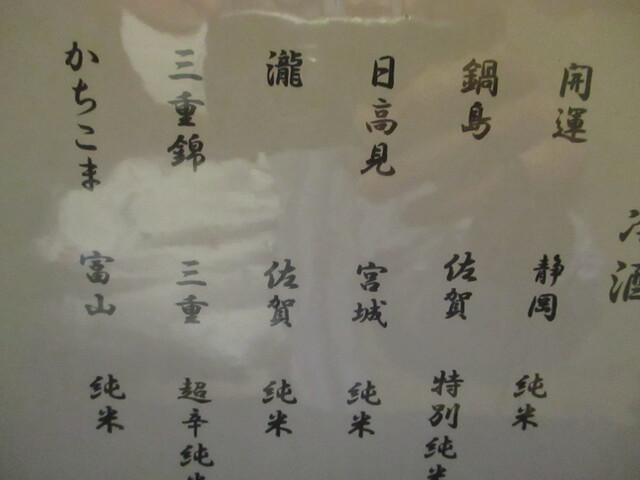 冷酒
開運 静岡 純米
鍋島 佐賀 特別純米
日高見 宮城 純米
瀧 佐賀 純米
三重錦 三重 超辛純米
かちこま 富山 純米